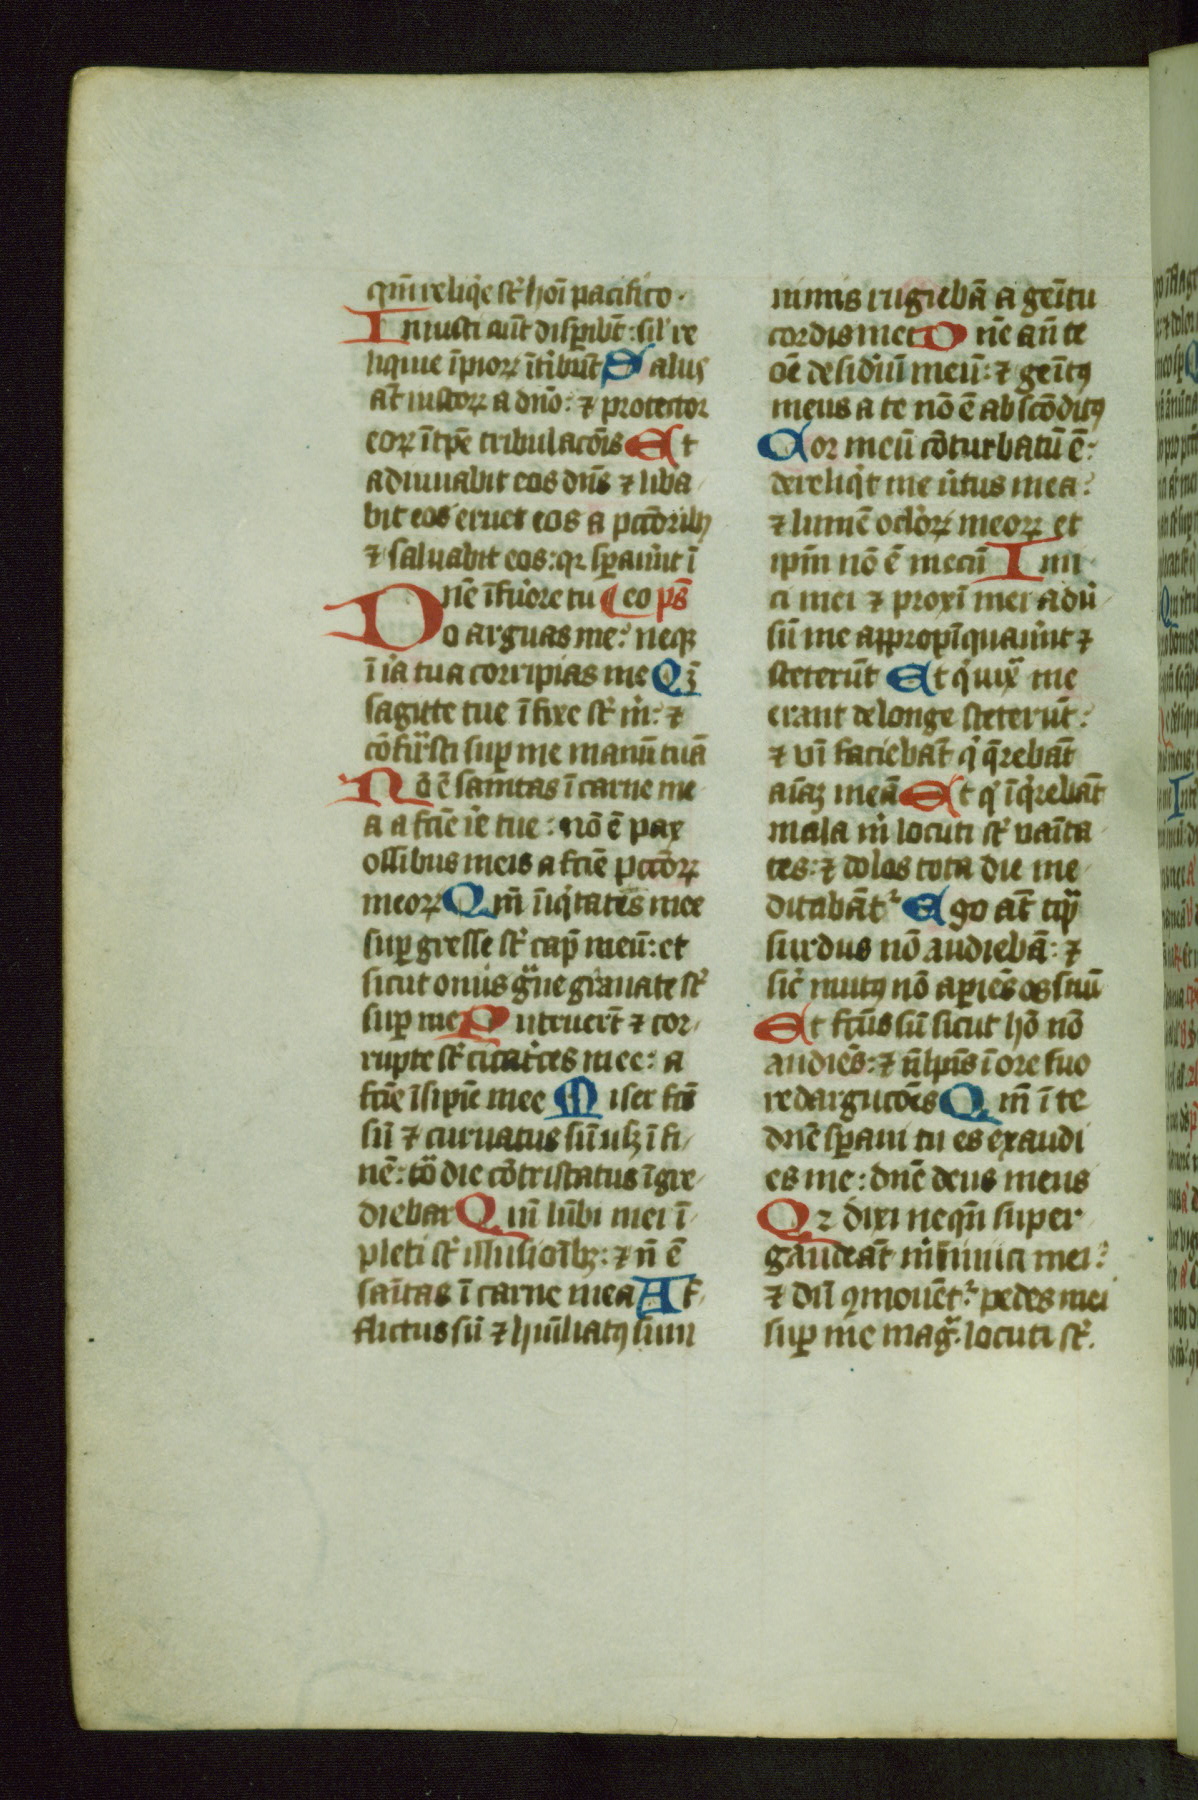 qm̄ reliq̄e st̄ hoī pacifico.
Iniusti aūt disp̄ibūt: sil' re
liquie īpioꝝ ītibūt Salus
aūt iustoꝝ a dn̄o: ⁊ protector
eoꝝ ītp̄e tribulacōis Et
adiuuabit eos dn̄s ⁊ liba
bit eos eruet eos a pcc̄oribꝰ
⁊ saluabit eos: qꝛ sꝑauīt ī
Dn̄e ī furore tu eo ps̄
o arguas me: neqꝫ
ī ira tua corripias me Qꝫ
sagitte tue īfixe st̄ m̄: ⁊
cōfirsti suꝑ me manū tuā
Nō ē sanitas ī carne me
a a fcīe ire tue: nō ē pax
ossibus meis a fcīe pcc̄oꝝ
meoꝝ Qm̄ īiqitates mee
suꝑgresse st̄ cap̄ meū: et
sicut onus g̃ue grauate st̄
suꝑ me Putruert̄ ⁊ cor
rupte st̄ cicatces mee: a
fcīe īsipie mee Miser fcs̄
sū ⁊ curuatus sū usqꝫ ī fi
nē: tō die cōtristatus īgre
diebar Qm̄ lūbi mei ī
pleti st̄ illusioībꝫ: ⁊ n̄ ē
saītas ī carne mea Af
flictus sū ⁊ hūiliatꝰ sum
nimis rugiebā a geītu
cordis mei Dn̄e añ te
oē desidiūm meū: ⁊ geītꝰ
meus a te nō ē abscōditꝰ
Cor meū cōturbatū ē:
dereliqͥt me ūtus mea:
⁊ lumē ocloꝝ meoꝝ et
ipm̄ nō ē mecū Imi
ci mei ⁊ proxī mei adū
sū me appropīquauīt ⁊
steterūt Et q̇ iux̄ me
erant de longe steterūt:
⁊ vī faciebāt q̇ q̄rebāt
aīaꝫ meā Et q̇ īq̇rebāt
mala m̄ locuti st̄ vaīta
tes: ⁊ dolos tota die me
ditabāt Ego aūt tqꝫ
surdus nō audiebā: ⁊
sic̄ mutꝰ nō aꝑiēs os suū
Et fcūs sū sicut hō nō
audiēs: ⁊ n̄ hn̄s ī ore suo
redargucōes Qm̄ ī te
dn̄e sꝑaui tu es exaudi
es me: dn̄e deus meus
Qꝛ dixi neqn̄ super
gaudeāt m̄ inimici mei:
⁊ dū qmouēt pedes mei
suꝑ me mag̃. locuti st̄.